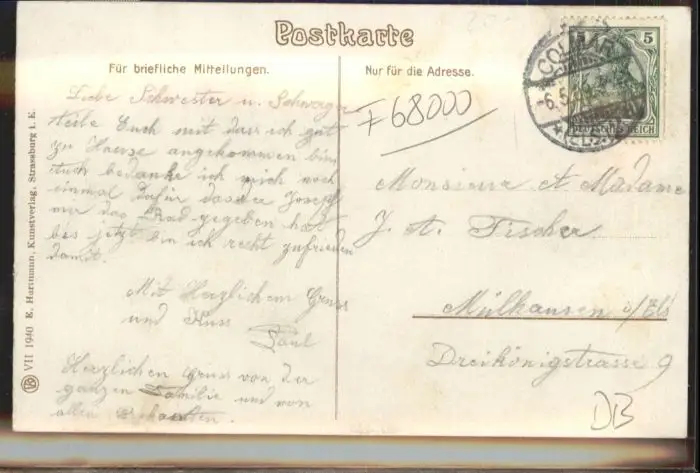 Postkarte
Für briefliche Mitteilungen.
Nur für die Adresse.
Liebe Schwester u. Schwager
Teile Euch mit dass ich gut
zu Hause angekommen bin
Euch bedanke ich mich noch
einmal dafür dass der Joseph
mir das Rad gegeben hat
bis jetzt bin ich recht zufrieden
damit.
Mit Herzlichem Gruss
und Kuss
Paul
Herzlichen Gruss von der
ganzen Familie und von
allen Bekannten.
F68000
Monsieur et Madame
J. A. Fischer
Mülhausen i/Els
Dreikönigstrasse 9
DB
COLMAR
-6.5.
(ELS.)
5 5
DEUTSCHES REICH
VII 1940 E. Hartmann, Kunstverlag, Strassburg i. E.